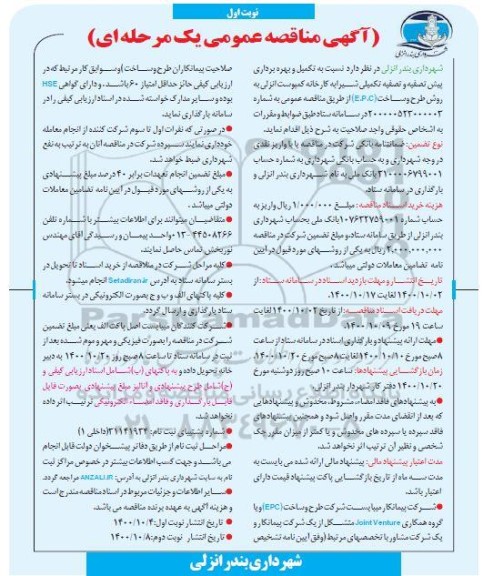 نوبت اول
(آگهی مناقصه عمومی یک مرحله ای)
شهرداری بندر انزلی در نظر دارد نسبت به تکمیل و بهره برداری
پیش تصفیه و تصفیه تکمیلی شیرابه کارخانه کمپوست انزلی به
روش طرح و ساخت (E.P.C) از طریق مناقصه عمومی به شماره
۲۰۰۰۰۰۵۲۳۰۰۰۰۰۳ در سامانه ستاد طبق ضوابط و مقررات
به اشخاص حقوقی واجد صلاحیت به شرح ذیل اقدام نماید.
نوع تضمین: ضمانتنامه بانکی شرکت در مناقصه یا واریز نقدی
در وجه شهرداری و به حساب بانکی شهرداری به شماره حساب
۳۱۰۰۰۰۶۷۹۹۰۰۱ بانک ملی به نام شهرداری بندر انزلی و
بارگذاری در سامانه ستاد.
هزینه خرید اسناد مناقصه: مبلغ ۱/۰۰۰/۰۰۰ ریال واریز به
حساب شماره ۰۱۰۷۶۳۲۷۵۹۰۰۱ بانک ملی بحساب شهرداری
بندر انزلی از طریق سامانه ستاد، و مبلغ تضمین شرکت در مناقصه
۲,۰۰۰,۰۰۰,۰۰۰ ریال به یکی از روشهای مورد قبول در آیین
نامه تضامین معاملات دولتی میباشد.
تاریخ انتشار و مهلت بازدید اسناد در سامانه ستاد: از
۱۴۰۰/۱۰/۰۲ لغایت ۱۴۰۰/۱۰/۱۷.
مهلت دریافت اسناد مناقصه: از تاریخ ۱۴۰۰/۱۰/۰۲ لغایت
ساعت ۱۹ مورخ ۱۴۰۰/۱۰/۰۹.
مهلت ارائه پیشنهاد و بارگذاری اسناد در سامانه ستاد از ساعت
۸ صبح مورخ ۱۴۰۰/۱۰/۱۰ لغایت ۸ صبح مورخ ۱۴۰۰/۱۰/۲۰.
زمان بازگشایی پیشنهادها: ساعت ۱۰ صبح روز دوشنبه مورخ
۱۴۰۰/۱۰/۲۰ دفتر کار شهردار بندر انزلی.
به پیشنهادهای فاقد امضاء، مشروط، مخدوش و پیشنهادهایی
که بعد از انقضای مدت مقرر واصل شود و همچنین پیشنهادهای
فاقد سپرده یا سپرده های مخدوش و یا کمتر از میزان مقرر، چک
شخصی و نظیر آن ترتیب اثر داده نخواهد شد.
مدت اعتبار پیشنهاد مالی: پیشنهاد مالی ارائه شده می بایست به
مدت سه ماه از تاریخ بازگشایی پاکت پیشنهاد قیمت دارای
اعتبار باشد.
شرکت پیمانکار میبایست شرکت طرح و ساخت (EPC) و یا
گروه همکاری Joint Venture متشکل از یک شرکت پیمانکار و
یک شرکت مشاور با تخصصهای مرتبط (وفق آیین نامه تشخیص
صلاحیت پیمانکاران طرح و ساخت) و سوابق کار مرتبط که در
ارزیابی کیفی حائز حداقل امتیاز ۶۰ باشد، و دارای گواهی HSE
بوده و سایر مدارک خواسته شده در اسناد ارزیابی کیفی را در
سامانه بارگذاری نماید.
در صورتی که نفرات اول تا سوم شرکت کننده از انجام معامله
خودداری نمایند سپرده شرکت در مناقصه آنان به ترتیب به نفع
شهرداری ضبط خواهد شد.
مبلغ تضمین انجام تعهدات برابر ۴۰ درصد مبلغ پیشنهادی
به یکی از روشهای مورد قبول در آیین نامه تضامین معاملات
دولتی میباشد.
متقاضیان میتوانند برای اطلاعات بیشتر با شماره تلفن
۰۱۳-۴۴۵۰۸۲۶۶ واحد پیمان و رسیدگی آقای مهندس
نوربخش تماس حاصل نمایند.
کلیه مراحل شرکت در مناقصه از خرید اسناد تا تحویل در
بستر سامانه ستاد به آدرس Setadiran.ir انجام میشود.
کلیه پاکتهای الف و ب و ج بصورت الکترونیکی در بستر سامانه
ستاد بارگذاری و ارسال گردد.
شرکت کنندگان میبایست اصل پاکت الف یعنی مبلغ تضمین
شرکت در مناقصه را بصورت فیزیکی و مهر و موم شده بعد از
ثبت در سامانه ستاد تا ساعت ۸ صبح روز ۱۴۰۰/۱۰/۲۰ به دبیر
خانه تحویل داده و به پاکتهای (ب) شامل اسناد ارزیابی کیفی و
(ج) شامل طرح پیشنهادی و آنالیز مبلغ پیشنهادی بصورت فایل
فایل بارگذاری و فاقد امضاء الکترونیکی ترتیب اثر داده
نخواهد شد.
شماره پشتیبانی ثبت نام: ۳۱۱۴۱۹۳۴ (داخلی ۱)
مراحل ثبت نام از طریق دفاتر پیشخوان دولت قابل انجام
می باشد و جهت کسب اطلاعات بیشتر در خصوص مراکز ثبت
نام به سایت شهرداری بندر انزلی به آدرس: ANZALI.IR مراجعه گردد.
سایر اطلاعات و جزئیات مربوط در اسناد مناقصه مندرج است
و هزینه آگهی به عهده برنده مناقصه می باشد.
تاریخ انتشار نوبت اول: ۱۴۰۰/۱۰/۴
تاریخ انتشار نوبت دوم: ۱۴۰۰/۱۰/۸
شهرداری بندر انزلی